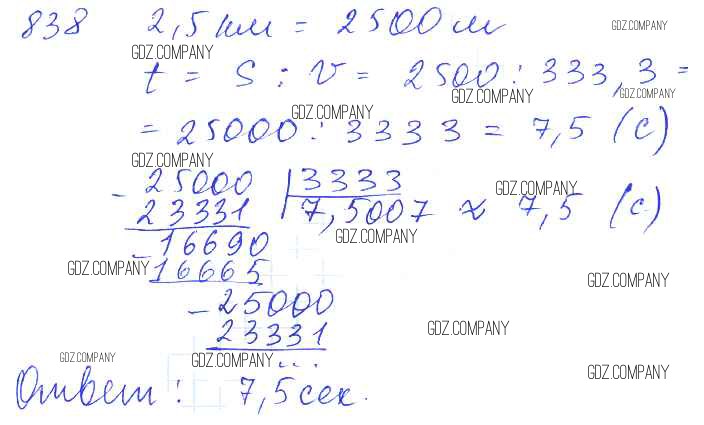 838 2,5 км = 2500 м
GDZ.COMPANY
GDZ.COMPANY
t = S : V = 2500 : 333,3 =
GDZ.COMPANY
GDZ.COMPANY
GDZ.COMPANY
= 25000 : 3333 = 7,5 (с)
GDZ.COMPANY
- 25000 | 3333
GDZ.COMPANY
23331 7,5007 ≈ 7,5 (с)
GDZ.COMPANY
- 16690
GDZ.COMPANY
16665
GDZ.COMPANY
- 25000
23331
GDZ.COMPANY
...
GDZ.COMPANY
GDZ.COMPANY
GDZ.COMPANY
Ответ: 7,5 сек.